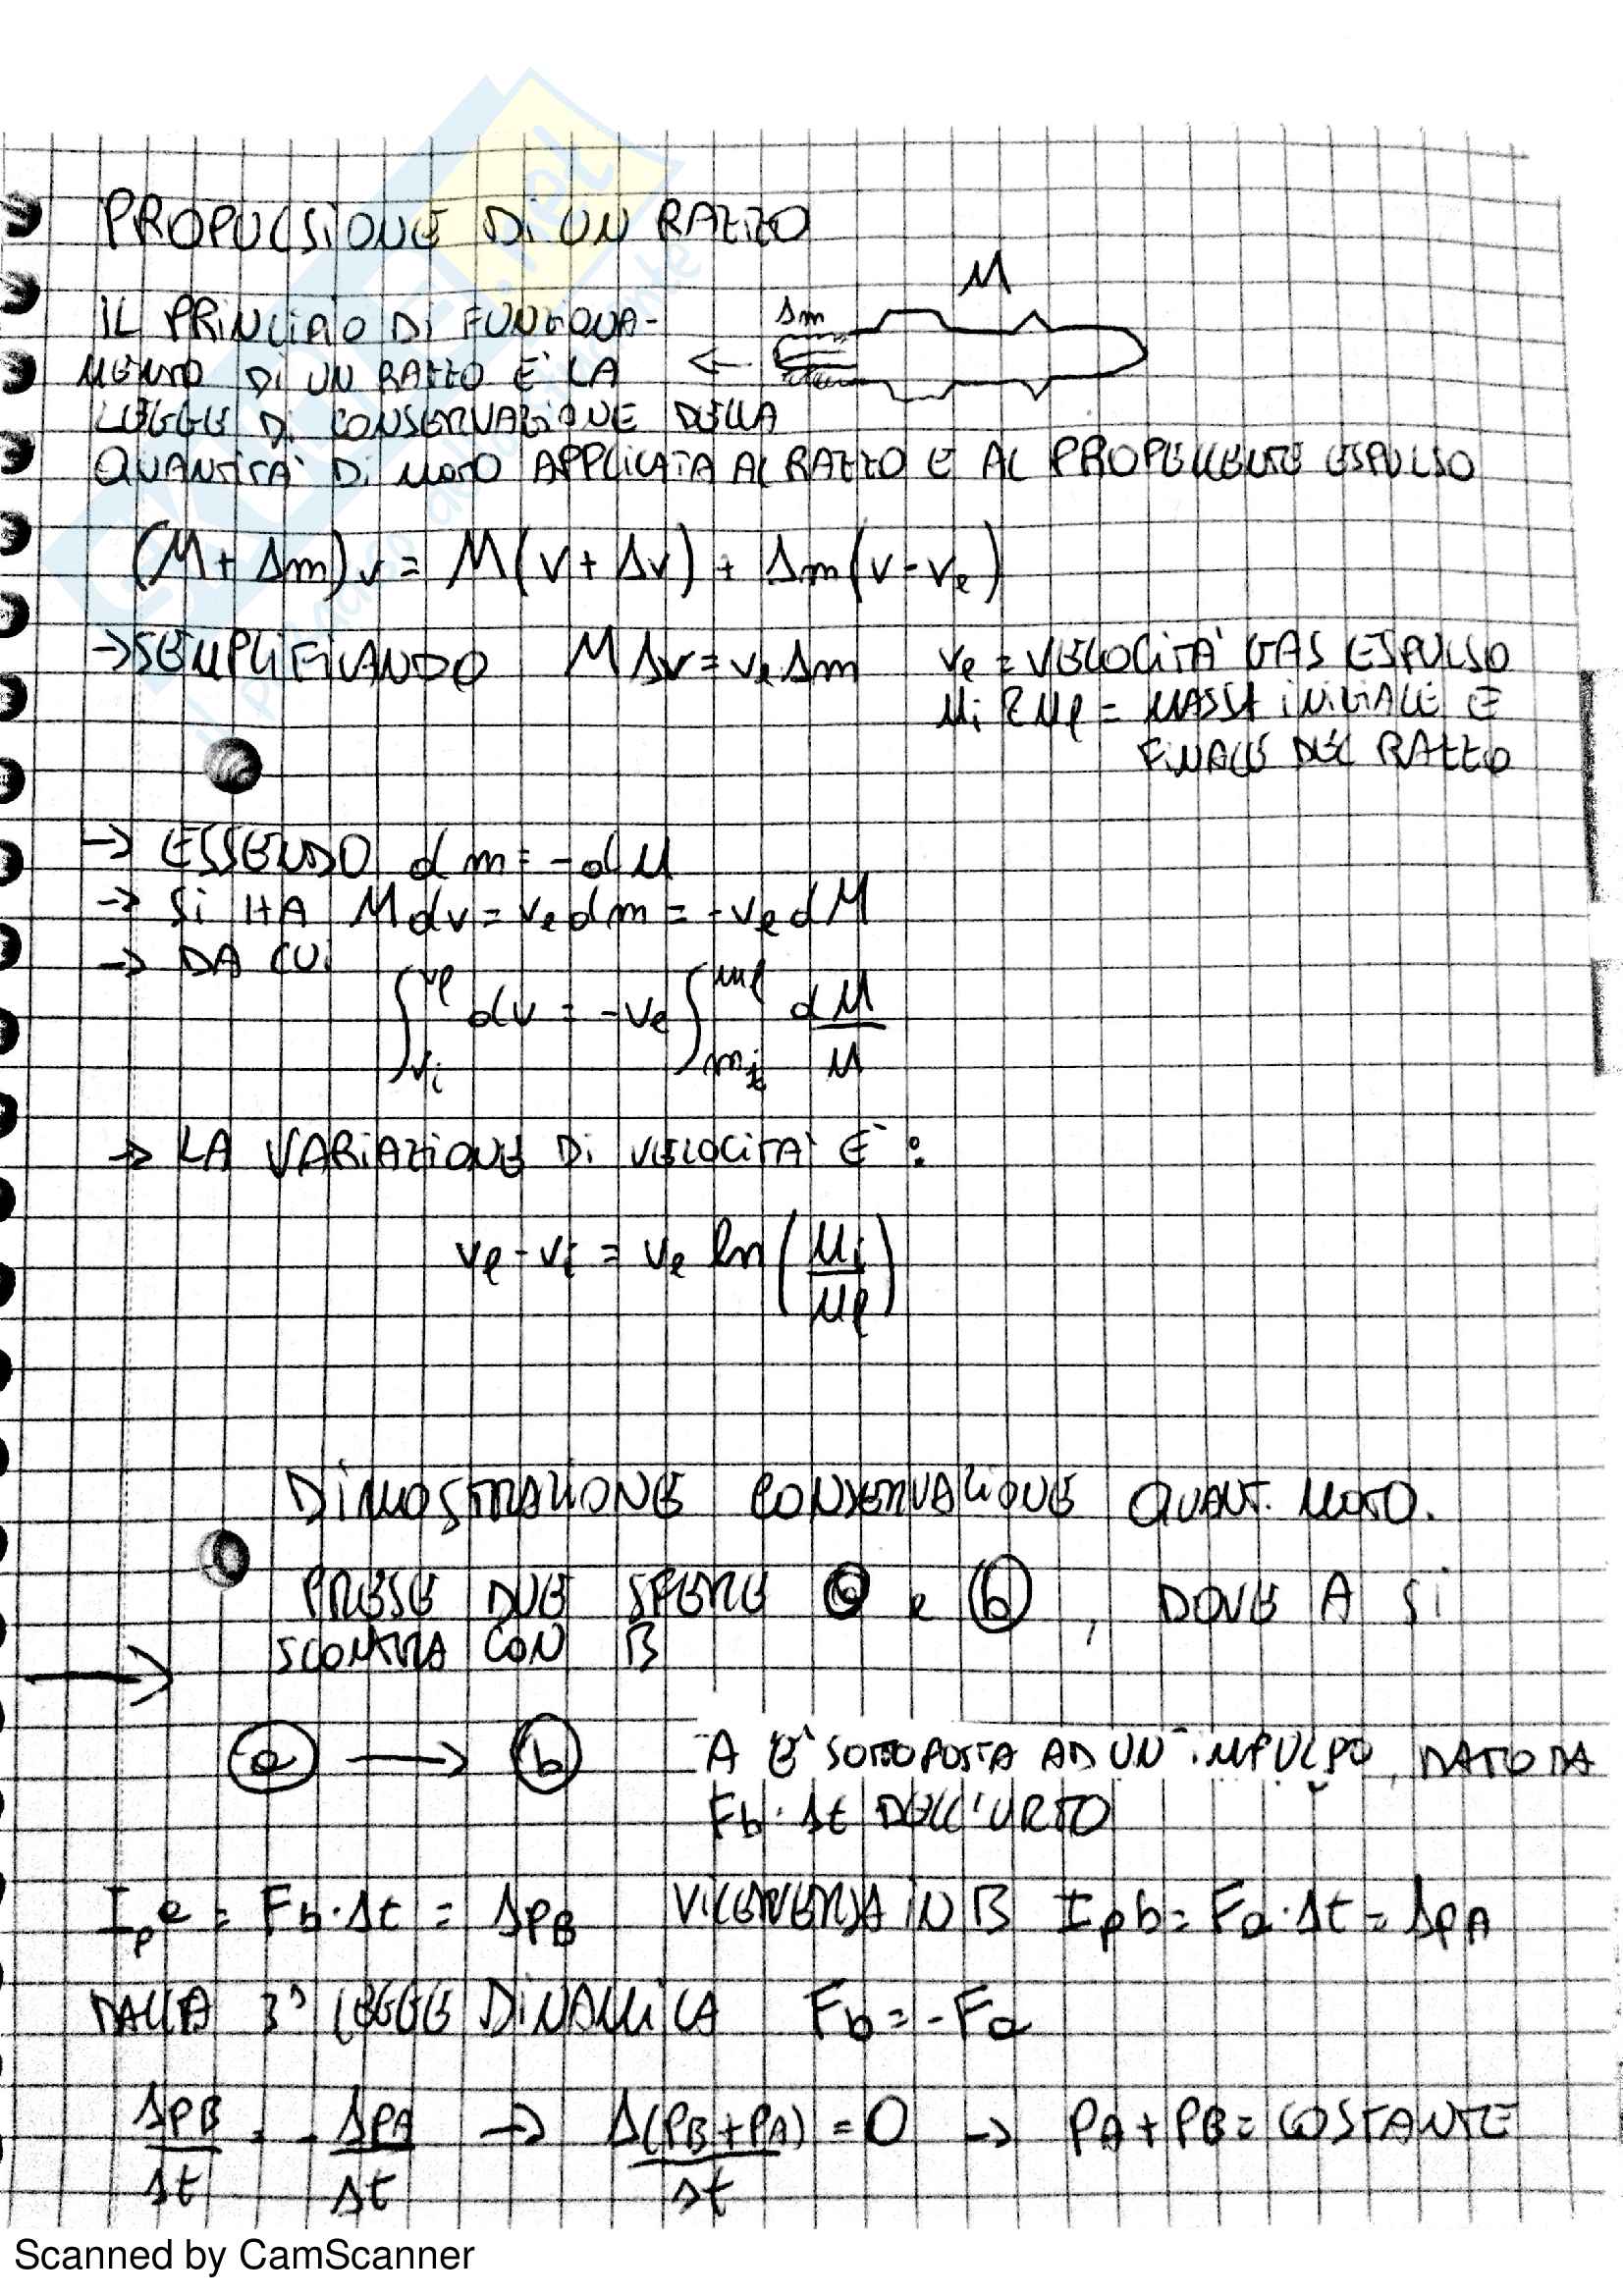 PROPULSIONE DI UN RAZZO
M
Δm
IL PRINCIPIO DI FUNZIONA-
MENTO DI UN RAZZO E' LA
LEGGE DI CONSERVAZIONE DELLA
QUANTITA' DI MOTO APPLICATA AL RAZZO E AL PROPELLENTE ESPULSO
(M + Δm) v = M (v + Δv) + Δm (v - ve)
→ SEMPLIFICANDO M Δv = ve Δm ve = VELOCITA' GAS ESPULSO
Mi e Mf = MASSA INIZIALE E
FINALE DEL RAZZO
→ ESSENDO dm = -dM
→ Si HA M dv = ve dm = -ve dM
→ DA CUI
∫ vi vf dv = -ve ∫ mi mf dM / M
→ LA VARIAZIONE DI VELOCITA' E':
vf - vi = ve ln (Mi / Mf)
DIMOSTRAZIONE CONSERVAZIONE QUANT. MOTO.
PRESE DUE SFERE a e b, DOVE A SI
SCONTRA CON B
a → b A E' SOTTOPOSTA AD UN IMPULSO, DATO DA
Fb · Δt DELL'URTO
Ipa = Fb · Δt = ΔpB VICEVERSA IN B Ipb = Fa · Δt = ΔpA
DALLA 3° LEGGE DINAMICA Fb = -Fa
ΔPB / Δt = - ΔPA / Δt → Δ(PB + PA) / Δt = 0 → PA + PB = COSTANTE
Scanned by CamScanner